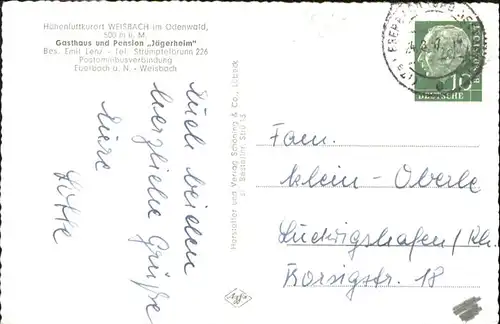 Höhenluftkurort WEISBACH im Odenwald,
500 m ü. M.
Gasthaus und Pension „Jägerheim"
Bes. Emil Lenz - Tel. Strümpfelbrunn 226
Postomnibusverbindung
Eberbach a. N. - Weisbach
Euch beiden
herzliche Grüße
Eure
Lotte
Hersteller und Verlag Schöning & Co., Lübeck
Bestellnr.
Agfa
10
DEUTSCHE
Fam.
Klein - Oberle
Ludwigshafen / Rh.
Borsigstr. 18